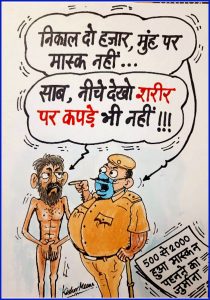 निकाल दो हज़ार, मुंह पर
मास्क नहीं...
साब, नीचे देखो शरीर
पर कपड़े भी नहीं !!!
500 से 2000
हुआ मास्क न
पहनने का
जुर्माना